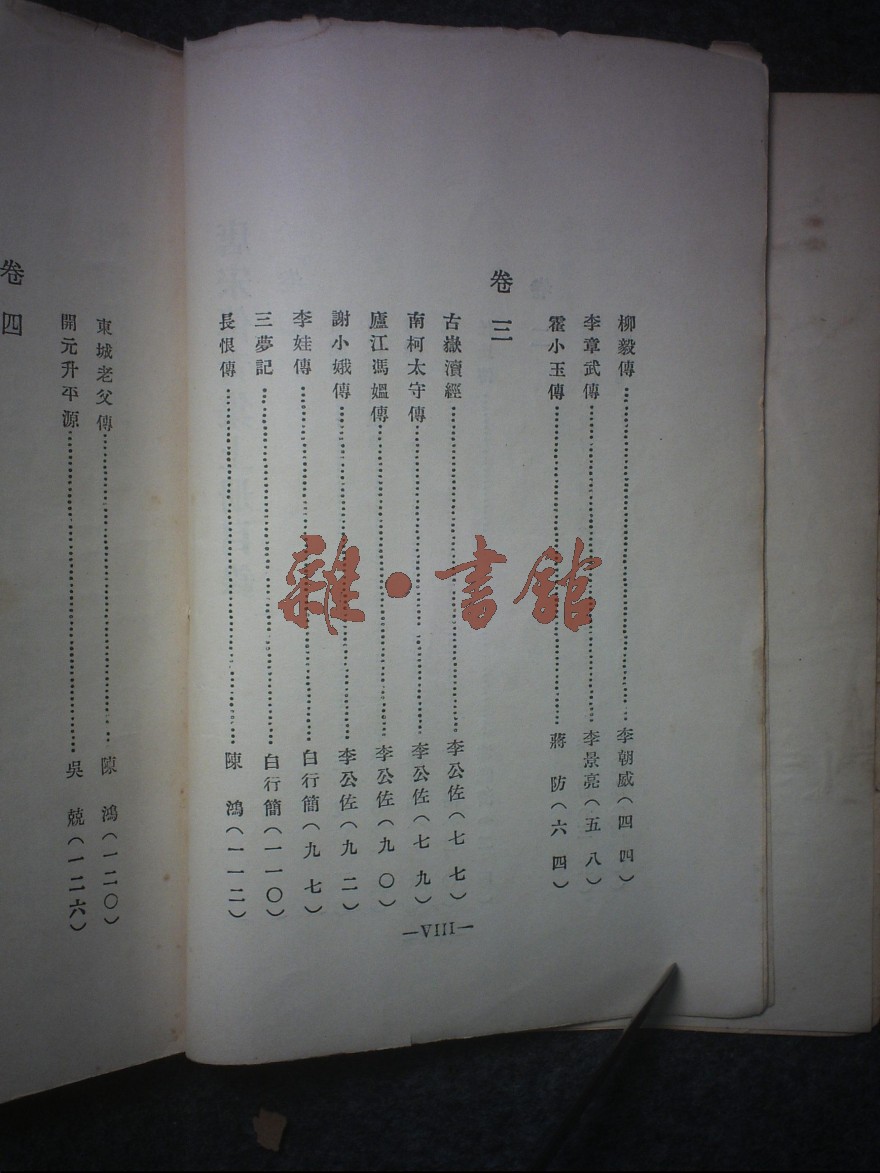 柳毅傳……李朝威(四四)
李章武傳……李景亮(五八)
霍小玉傳……蔣防(六四)
卷三
古嶽瀆經……李公佐(七七)
南柯太守傳……李公佐(七九)
廬江馮媼傳……李公佐(九〇)
謝小娥傳……李公佐(九二)
李娃傳……白行簡(九七)
三夢記……白行簡(一一〇)
長恨傳……陳鴻(一一二)
—VIII—
東城老父傳……陳鴻(一二〇)
開元升平源……吳兢(一二六)
卷四
雜·書館